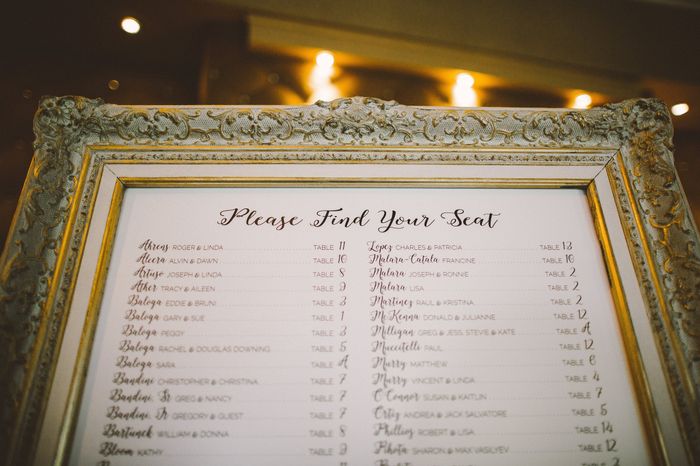 Please Find Your Seat
Ahrens ROGER & LINDA TABLE 11
ALVIN & DAWN TABLE 10
Artuso JOSEPH & LINDA TABLE 8
Ather TRACY & AILEEN TABLE 9
Baloga EDDIE & BRUNI TABLE 3
Baloga GARY & SUE TABLE 1
Baloga PEGGY TABLE 3
Baloga RACHEL & DOUGLAS DOWNING TABLE 5
Baloga SARA TABLE A
Bandini CHRISTOPHER & CHRISTINA TABLE 7
Bandini, Sr. GREG & NANCY TABLE 7
Bandini, Jr. GREGORY & GUEST TABLE 7
Bartunek WILLIAM & DONNA TABLE 8
Bloom KATHY TABLE
Lopez CHARLES & PATRICIA TABLE 13
Malara-Catala FRANCINE TABLE 10
Malara JOSEPH & RONNIE TABLE 2
Malara LISA TABLE 2
Martinez RAUL & KRISTINA TABLE 2
McKenna DONALD & JULIANNE TABLE 12
Milligan GREG & JESS, STEVE & KATE TABLE A
Muccitelli PAUL TABLE 12
Murry MATTHEW TABLE 6
Murry VINCENT & LINDA TABLE 4
O'Connor SUSAN & KAITLIN TABLE 7
Ortiz ANDREA & JACK SALVATORE TABLE 5
Phillips ROBERT & LISA TABLE 14
Pihota SHARON & MAX VASILYEV TABLE 12